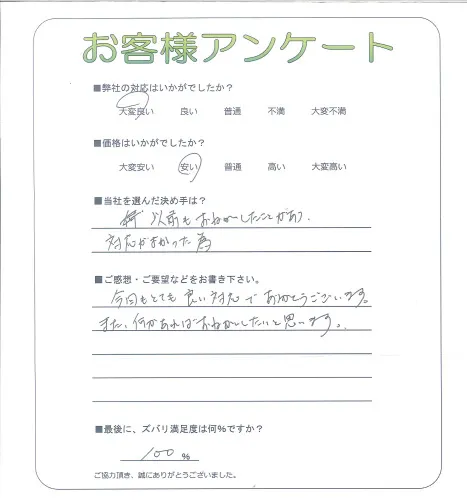 お客様アンケート
■弊社の対応はいかがでしたか?
大変良い 良い 普通 不満 大変不満
■価格はいかがでしたか?
大変安い 安い 普通 高い 大変高い
■当社を選んだ決め手は?
以前もおねがいしたことがあり、
対応がよかった為
■ご感想・ご要望などをお書き下さい。
今回もとても良い対応でありがとうございます。
また、何かあればおねがいしたいと思います。
■最後に、ズバリ満足度は何%ですか?
100 %
ご協力頂き、誠にありがとうございました。